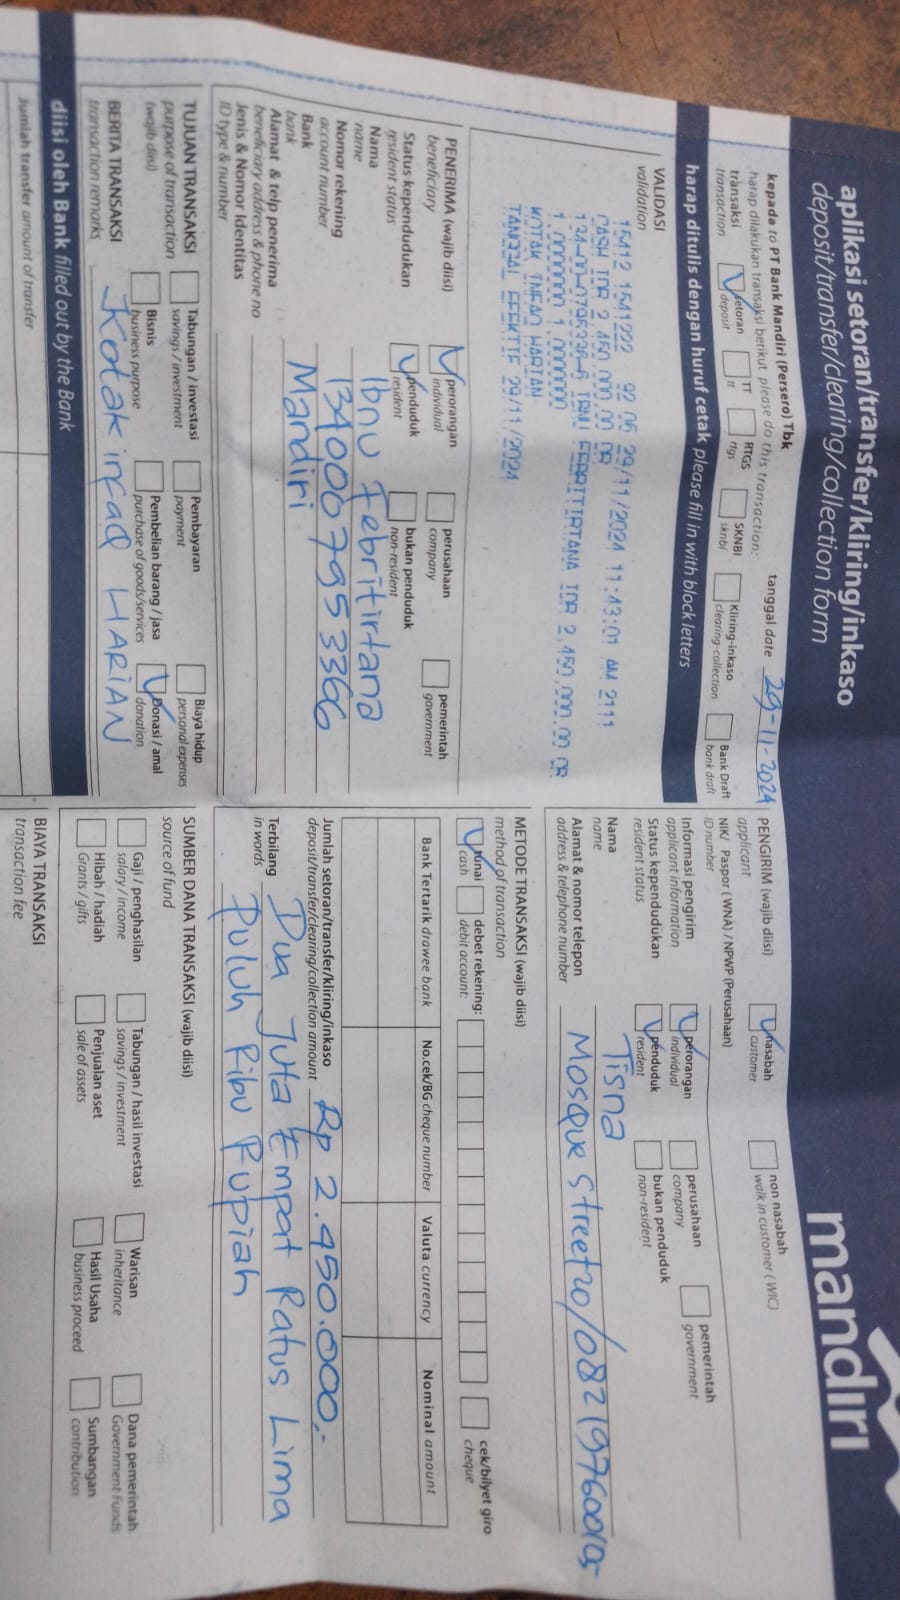 aplikasi setoran/transfer/kliring/inkaso
deposit/transfer/clearing/collection form
mandiri
kepada to PT Bank Mandiri (Persero) Tbk
tanggal date 29-11-2024
harap dilakukan transaksi berikut please do this transaction:
transaksi
transaction
setoran
deposit
TT
tt
RTGS
rtgs
SKNBI
sknbi
Kliring-inkaso
clearing-collection
Bank Draft
bank draft
harap ditulis dengan huruf cetak please fill in with block letters
VALIDASI
validation
15412 1541222 92 06 29/11/2024 11:43:01 AM 2111
CASH IDR 2,450,000.00 DR
IDR 2,450,000.00 CR
1.000000 1.000000
KOTAK INFAQ HARIAN
TANGGAL EFEKTIF 29/11/2024
PENERIMA (wajib diisi)
beneficiary
perorangan
individual
perusahaan
company
pemerintah
government
Status kependudukan
resident status
penduduk
resident
bukan penduduk
non-resident
Nama
name
Ibnu Febritirtana
Nomor rekening
account number
1340007953366
Bank
bank
Mandiri
Alamat & telp penerima
beneficiary address & phone no
Jenis & Nomor Identitas
ID type & number
TUJUAN TRANSAKSI
purpose of transaction
(wajib diisi)
Tabungan / investasi
savings / investment
Pembayaran
payment
Biaya hidup
personal expenses
Bisnis
business purpose
Pembelian barang / jasa
purchase of goods/services
Donasi / amal
donation
BERITA TRANSAKSI
transaction remarks
Kotak infaq HARIAN
diisi oleh Bank filled out by the Bank
Jumlah transfer amount of transfer
PENGIRIM (wajib diisi)
applicant
nasabah
customer
non nasabah
walk in customer (WIC)
NIK/ Paspor (WNA) / NPWP (Perusahaan)
ID number
Informasi pengirim
applicant information
perorangan
individual
perusahaan
company
pemerintah
government
Status kependudukan
resident status
penduduk
resident
bukan penduduk
non-resident
Nama
name
Tisna
Alamat & nomor telepon
address & telephone number
Mosque Street 20/
METODE TRANSAKSI (wajib diisi)
method of transaction
tunai
cash
debet rekening:
debit account:
cek/bilyet giro
cheque
Bank Tertarik drawee bank
No.cek/BG cheque number
Valuta currency
Nominal amount
Jumlah setoran/transfer/kliring/inkaso
deposit/transfer/clearing/collection amount
Rp 2.450.000,-
Terbilang
in words
Dua Juta Empat Ratus Lima
Puluh Ribu Rupiah
SUMBER DANA TRANSAKSI (wajib diisi)
source of fund
Gaji / penghasilan
salary / income
Tabungan / hasil investasi
savings / investment
Warisan
inheritance
Dana pemerintah
Government Funds
Hibah / hadiah
Grants / gifts
Penjualan aset
sale of assets
Hasil Usaha
business proceed
Sumbangan
contribution
BIAYA TRANSAKSI
transaction fee